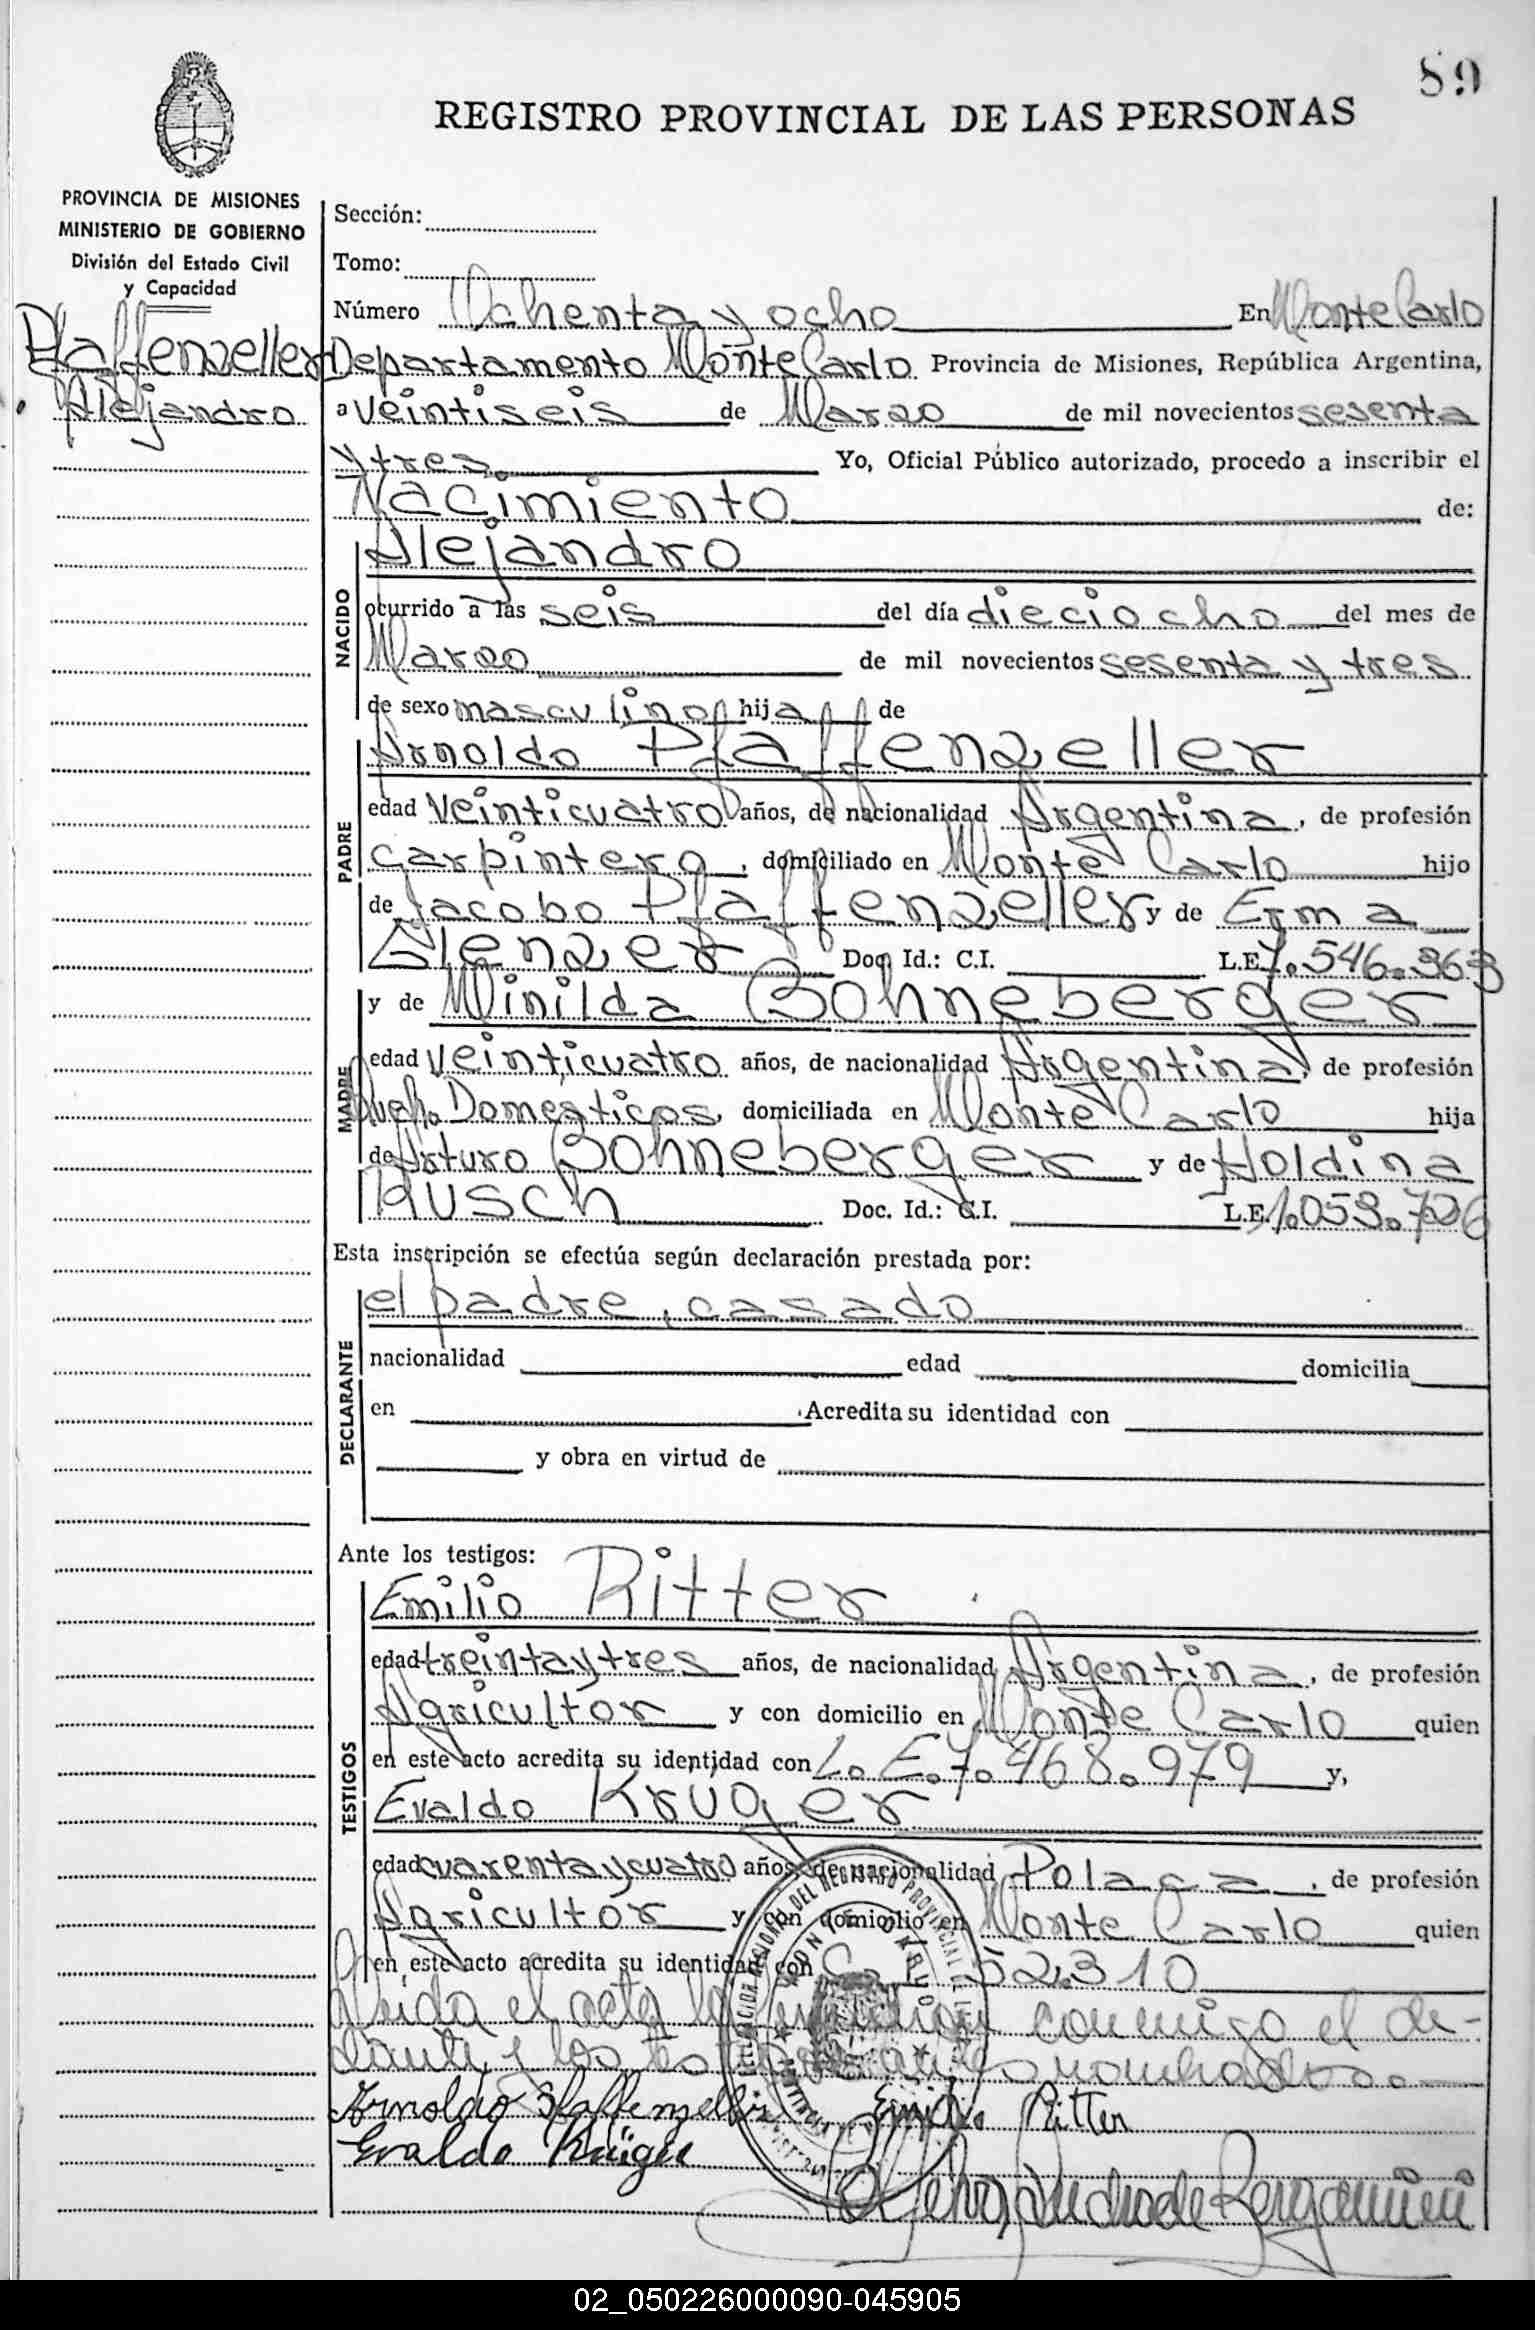 89
REGISTRO PROVINCIAL DE LAS PERSONAS
PROVINCIA DE MISIONES
MINISTERIO DE GOBIERNO
División del Estado Civil
y Capacidad
Pfaffenzeller
Alejandro
Sección:
Tomo:
Número Ochenta y ocho En Monte Carlo
Departamento Monte Carlo Provincia de Misiones, República Argentina,
a veintiseis de Marzo de mil novecientos sesenta
y tres. Yo, Oficial Público autorizado, procedo a inscribir el
Nacimiento de:
NACIDO
Alejandro
ocurrido a las seis del día dieciocho del mes de
Marzo de mil novecientos sesenta y tres
de sexo masculino hij de
PADRE
Arnoldo Pfaffenzeller
edad veinticuatro años, de nacionalidad Argentina, de profesión
carpintero, domiciliado en Monte Carlo hijo
de Jacobo Pfaffenzeller y de Erma
Glenzer Doc. Id.: C.I. L.E. 7.546.963
MADRE
y de Winilda Bohneberger
edad veinticuatro años, de nacionalidad Argentina, de profesión
Domesticos, domiciliada en Monte Carlo hija
de Arturo Bohneberger y de Holdina
Rusch Doc. Id.: C.I. L.E. 1.059.726
Esta inscripción se efectúa según declaración prestada por:
DECLARANTE
el padre, casado
nacionalidad edad domicilia
en Acredita su identidad con
y obra en virtud de
Ante los testigos:
TESTIGOS
Emilio Ritter
edad treinta y tres años, de nacionalidad Argentina, de profesión
Agricultor y con domicilio en Monte Carlo quien
en este acto acredita su identidad con L.E.7.468.979 y,
Evaldo Kruger
edad cuarenta y cuatro años, de nacionalidad Polaca, de profesión
Agricultor y con domicilio en Monte Carlo quien
en este acto acredita su identidad con C. I. 52.310
Leida el acta la conmigo el de-
clarante y los testigos nombrados.
Arnoldo Pfaffenzeller Emilio Ritter
Evaldo Krüger
02_050226000090-045905